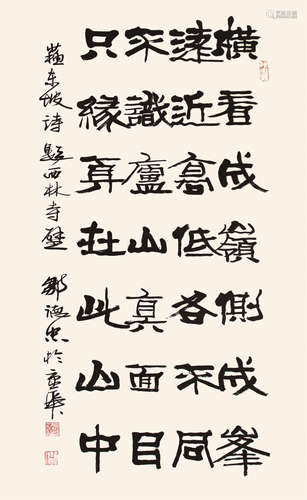 横看成嶺側成峯
遠近高低各不同
不識廬山真面目
只緣身在此山中
蘇东坡诗題西林寺壁 鄒德忠於京華